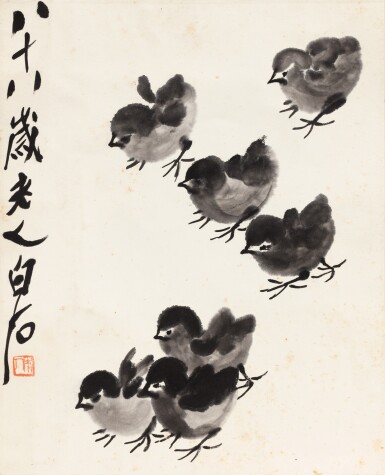 八十八歲老人白石